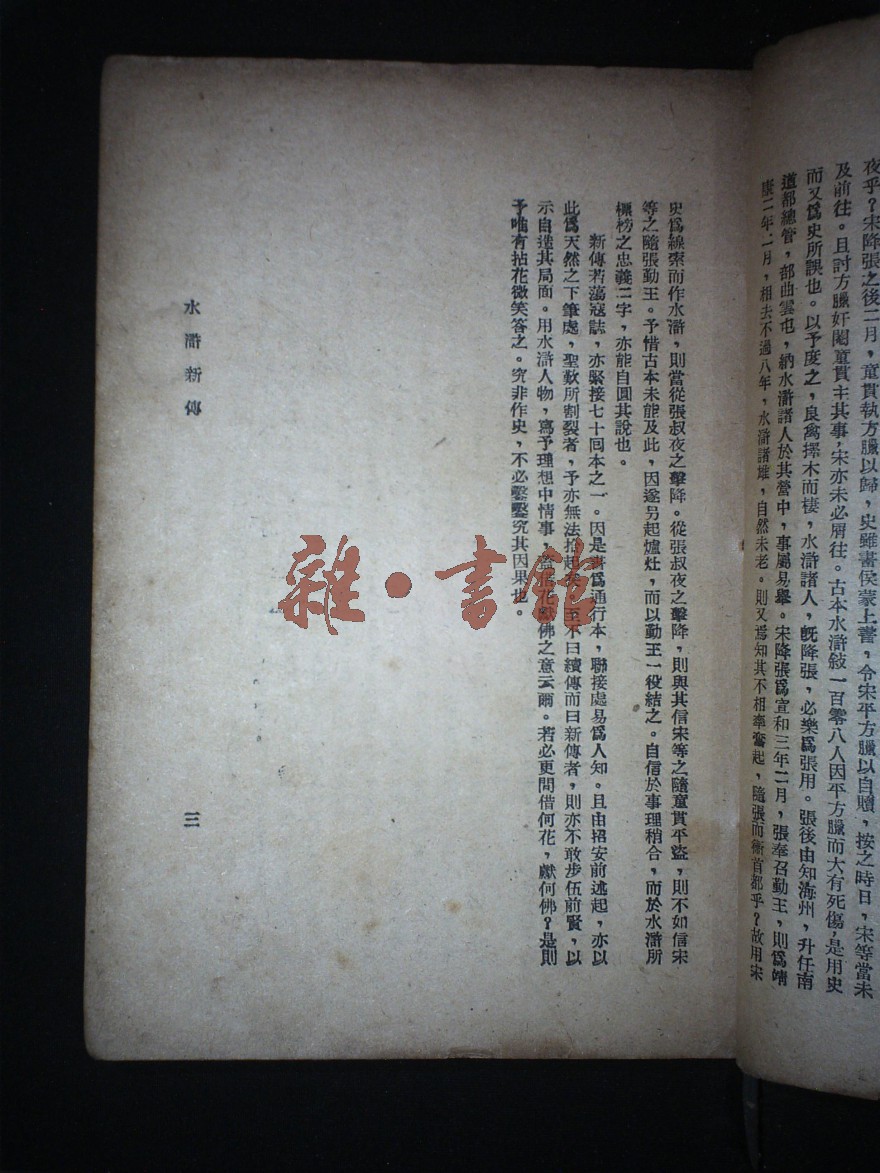 夜乎？宋降張之後二月，童貫執方臘以歸，史雖書侯蒙上書，令宋平方臘以自贖，按之時日，宋等當未
及前往。且討方臘奸閹童貫主其事，宋亦未必屑往。古本水滸敍一百零八人因平方臘而大有死傷，是用史
而又爲史所誤也。以予度之，良禽擇木而棲，水滸諸人，旣降張，必樂爲張用。張後由知海州，升任南
道都總管，部曲雲屯，納水滸諸人於其營中，事屬易舉。宋降張爲宣和三年二月，張奉召勤王，則爲靖
康二年二月，相去不過八年，水滸諸雄，自然未老。則又焉知其不相率奮起，隨張而衞首都乎？故用宋
史爲線索而作水滸，則當從張叔夜之擊降。從張叔夜之擊降，則與其信宋等之隨童貫平盜，則不如信宋
等之隨張勤王。予惜古本未能及此，因遂另起爐灶，而以勤王一役結之。自信於事理稍合，而於水滸所
標榜之忠義二字，亦能自圓其說也。
新傳若蕩寇誌，亦緊接七十回本之一。因是書爲通行本，聯接處易爲人知。且由招安前述起，亦以
此爲天然之下筆處，聖歎所割裂者，予亦無法拾起矣。至不曰續傳而曰新傳者，則亦不敢步伍前賢，以
示自遶其局面。用水滸人物，寫予理想中情事，蓋借花獻佛之意云爾。若必更問借何花，獻何佛？是則
予唯有拈花微笑答之。究非作史，不必鑿鑿究其因果也。
水滸新傳
三
雜·書館